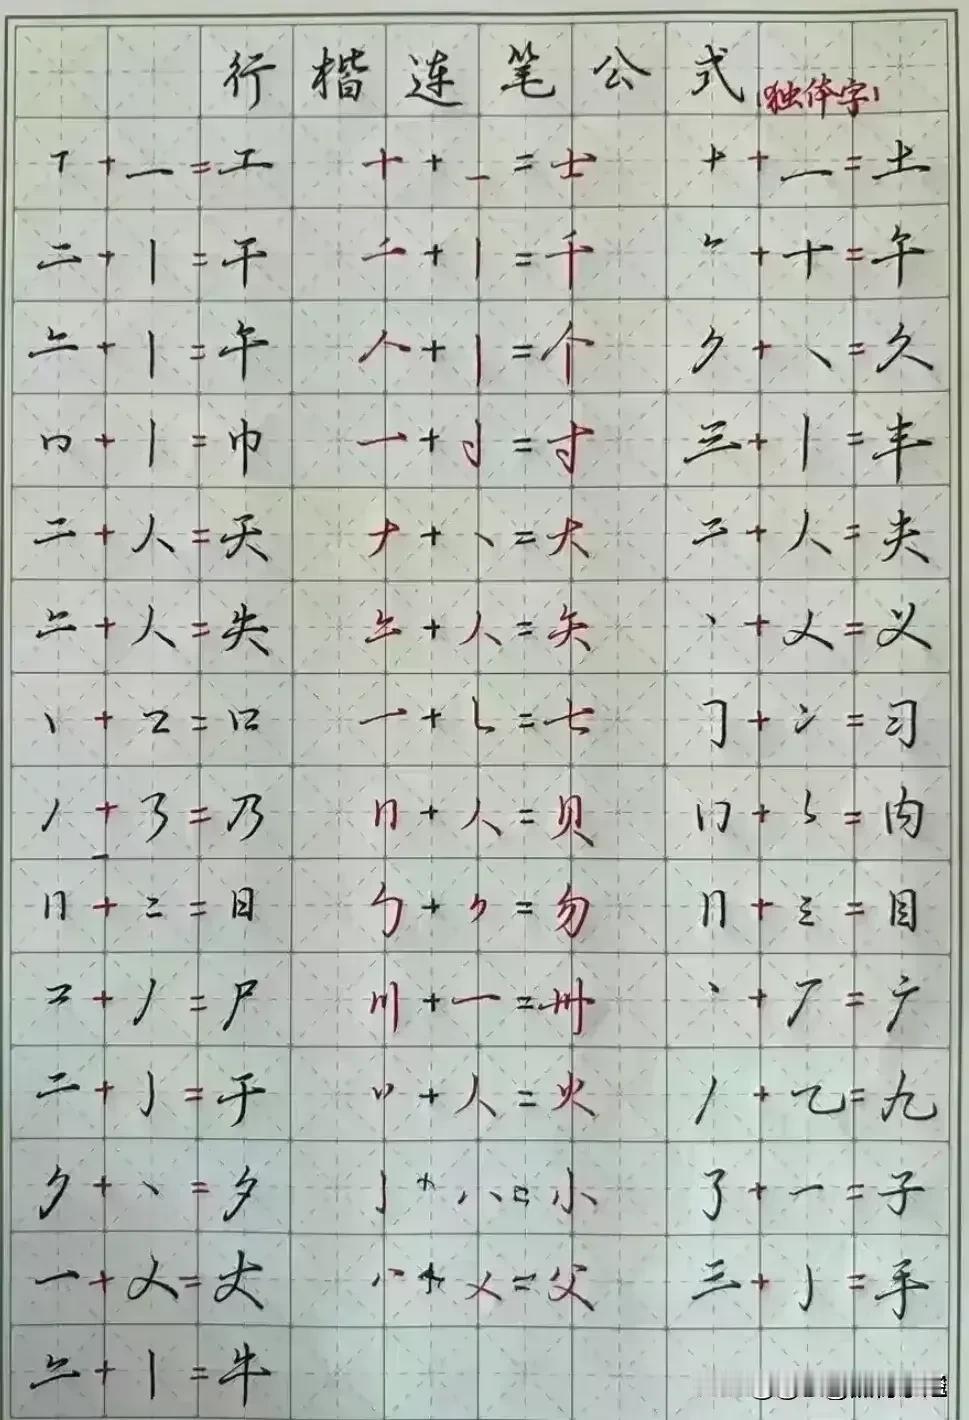 行楷连笔公式(独体字)
丅+一=工 十+一=士 十+一=土
二+丨=干 二+丨=千 𠂉+十=午
𠂉一+丨=午 人+丨=个 ク+丶=久
冂+丨=巾 一+亅丶=寸 三+丨=丰
二+人=天 ナ+丶=大 二+人=夫
𠂉一+人=失 𠂉一+人=矢 丶+乂=义
丨+コ=口 一+乚=七 𠃌+冫=习
丿+𠄎=乃 冂+人=贝 冂+人=肉
冂+三=目 勹+丿丿=勿 冂+三=目
コ+丿=尸 川+一=卅 丶+厂=广
二+亅=于 丷+人=火 丿+乙=九
夕+丶=夕 亅+八=小 了+一=子
一+乂=丈 八+乂=父 三+亅=手
𠂉一+丨=牛